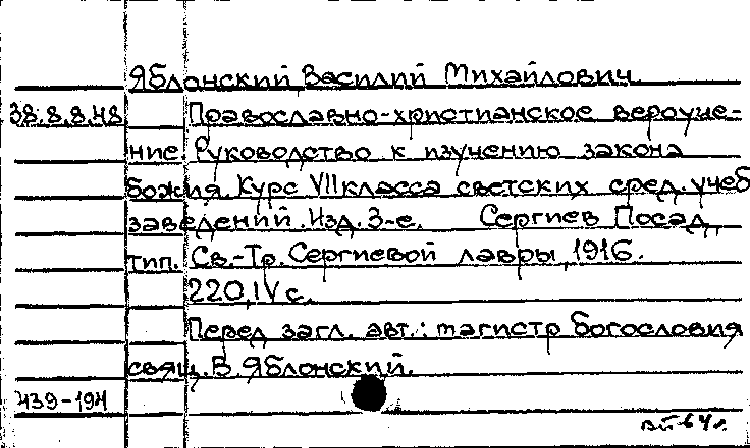 Яблонский, Василий Михайлович.
38.8.8.48 Православно-христианское вероуче-
ние. Руководство к изучению закона
божия. Курс VII класса светских сред. учеб
заведений. Изд. 3-е. Сергиев Посад,
тип. Св.-Тр. Сергиевой лавры, 1916.
220, IV с.
Перед загл. авт.: магистр богословия
свящ. В. Яблонский.
439-194